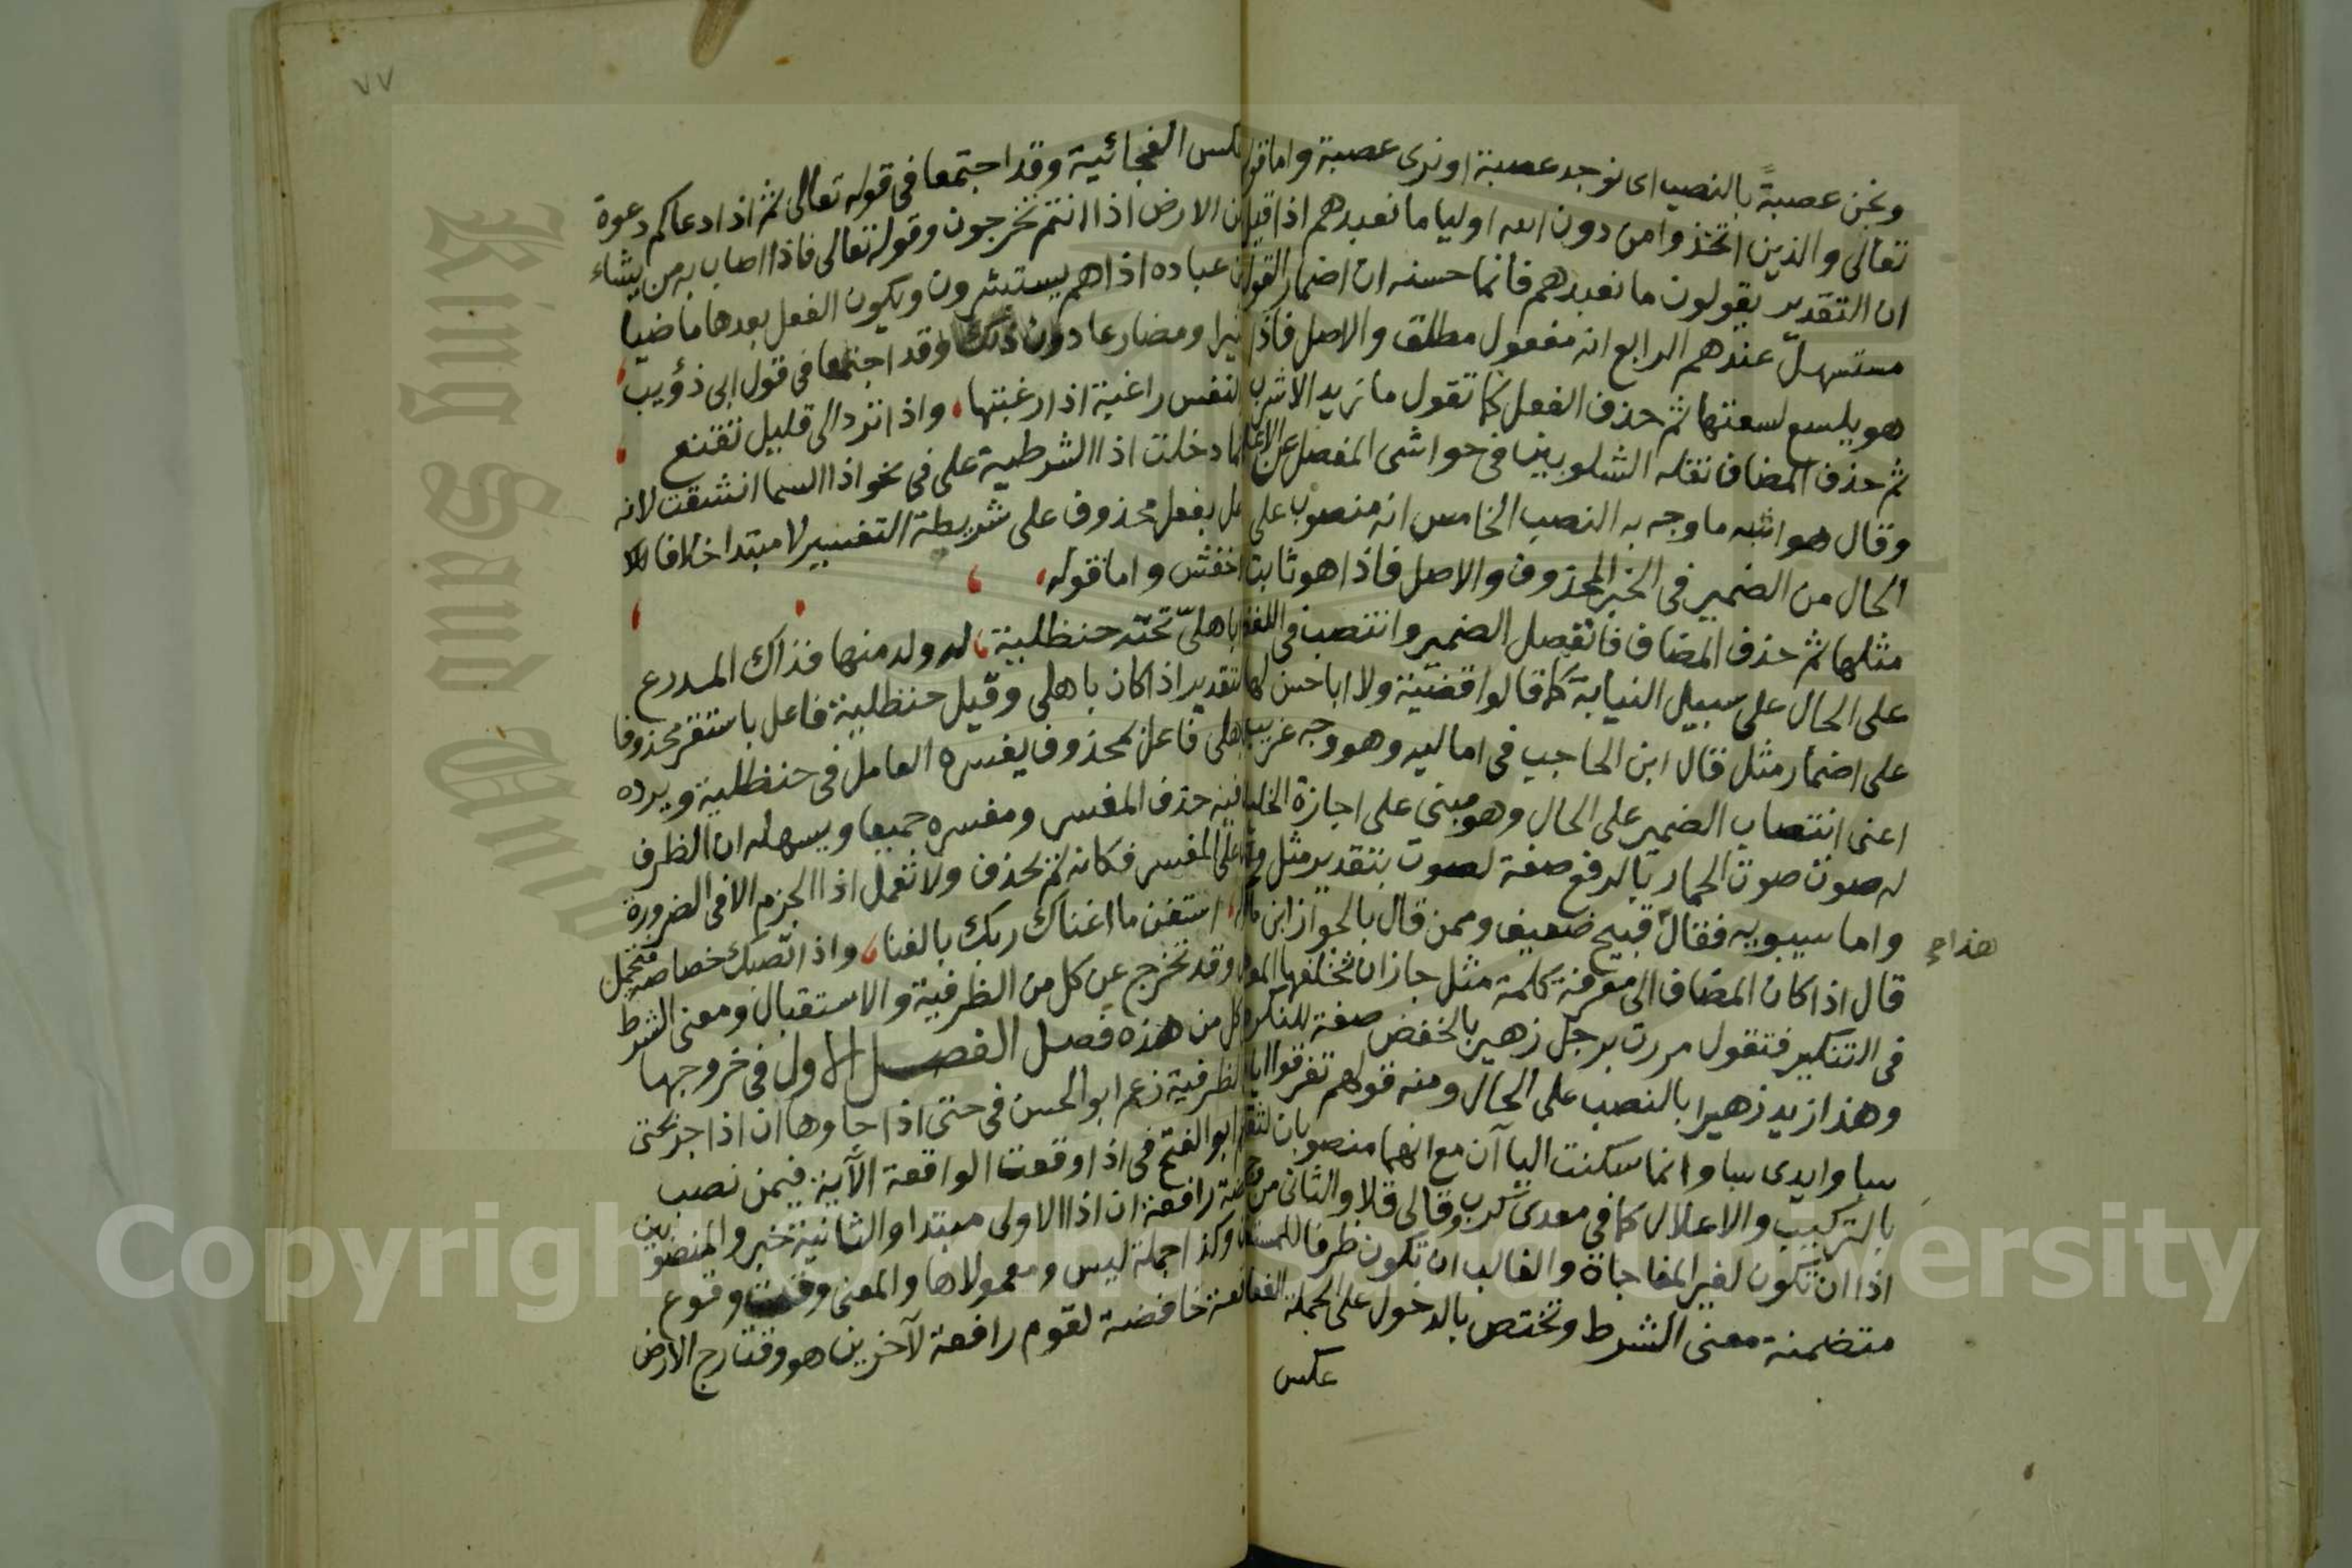 ونحن عصبةً بالنصب اى نوجد عصبة او نرى عصبة واما قو
تعالى والذين اتخذوا من دون الله اوليا ما نعبدهم اذا قيل
ان التقدير يقولون ما نعبدهم فانما حسنه ان اضمار القول
مستسهل عندهم الرابع انه مفعول مطلق والاصل فاذا
هو يلسع لسعتها ثم حذف الفعل كما تقول ما زيد الا شرب
ثم حذف المضاف نقله الشلوبين فى حواشى المفصل عن الاعلم
وقال هو اشبه ما وجه به النصب الخامس انه منصوب على
الحال من الضمير فى الخبر المحذوف والاصل فاذا هو ثابت
مثلها ثم حذف المضاف فانفصل الضمير وانتصب فى اللفظ
على الحال على سبيل النيابة كما قالوا قضية ولا ابا حسن لها
على اضمار مثل قال ابن الحاجب فى اماليه وهو وجه غريب
اعنى انتصاب الضمير على الحال وهو مبنى على اجازة الخليل
له صوت صوت الحمار بالرفع صفة لصوت بتقدير مثل
واما سيبويه فقال قبيح ضعيف وممن قال بالجواز ابن مالك
هذا
قال اذا كان المضاف الى معرفة كلمة مثل جاز ان تخلفها المعر
فى التنكير فتقول مررت برجل زهير بالخفض صفة للنكرة
وهذا زيد زهيرا بالنصب على الحال ومنه قولهم تفرقوا ايا
سبا وايدى سبا وانما سكنت اليا آن مع انهما منصوبان لثقلهما
بالتركيب والاعلال كما فى معدى كرب وقالى قلا والثانى من
اذا ان تكون لغير المفاجاة والغالب ان تكون ظرفا للمستقبل
متضمنة معنى الشرط وتختص بالدخول على الجملة الفعلية
عكس
٧٧
عكس الفجائية وقد اجتمعا فى قوله تعالى ثم اذا دعاكم دعوة
من الارض اذا انتم تخرجون وقوله تعالى فاذا اصاب به من يشاء
من عباده اذا هم يستبشرون ويكون الفعل بعدها ماضيا
كثيرا ومضارعا دون ذلك وقد اجتمعا فى قول ابى ذؤيب
والنفس راغبة اذا رغبتها، واذا ترد الى قليل تقنع
وانما دخلت اذا الشرطية على فى نحو اذا السما انشقت لانه
فاعل بفعل محذوف على شريطة التفسير لا مبتدا خلافا للا
خفش واما قوله
اذا باهلىّ تحته حنظلية، له ولد منها فذاك المدرع
فالتقدير اذا كان باهلى وقيل حنظلية فاعل باستقر محذوفا
وباهلى فاعل بمحذوف يفسره العامل فى حنظلية ويرده
ان فيه حذف المفسر ومفسره جميعا ويسهله ان الظرف
يدل على المفسر فكانه لم يحذف ولا تعمل اذا الجزم الا فى الضرورة
كقوله، استغن ما اغناك ربك بالغنا، واذا تصبك خصاصة فتحمل
وقد تخرج عن كل من الظرفية والاستقبال ومعنى الشرط
وفى كل من هذه فصل الفصل الاول فى خروجها
عن الظرفية زعم ابو الحسن فى حتى اذا جاوها ان اذا جر بحتى
وزعم ابو الفتح فى اذا وقعت الواقعة الآية فيمن نصب
خافضة رافعة ان اذا الاولى مبتدا والثانية خبر والمنصوبين
حالان وكذا جملة ليس ومعمولاها والمعنى وقت وقوع
الواقعة خافضة لقوم رافعة لآخرين هو وقت رج الارض